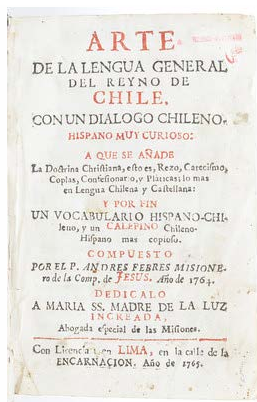 ARTE
DE LA LENGUA GENERAL
DEL REYNO DE
CHILE,
CON UN DIALOGO CHILENO-
HISPANO MUY CURIOSO:
A QUE SE AÑADE
La Doctrina Christiana, esto es, Rezo, Catecismo,
Coplas, Confesionario, y Pláticas; lo mas
en Lengua Chilena y Castellana:
Y POR FIN
UN VOCABULARIO HISPANO-CHI-
leno, y un CALEPINO Chileno-
Hispano mas copioso.
COMPUESTO
POR EL P. ANDRES FEBRES MISIONE-
ro de la Comp. de JESUS. Año de 1764.
DEDICALO
A MARIA SS. MADRE DE LA LUZ
INCREADA,
Abogada especial de las Misiones.
Con Licencia: en LIMA, en la calle de la
ENCARNACION. Año de 1765.